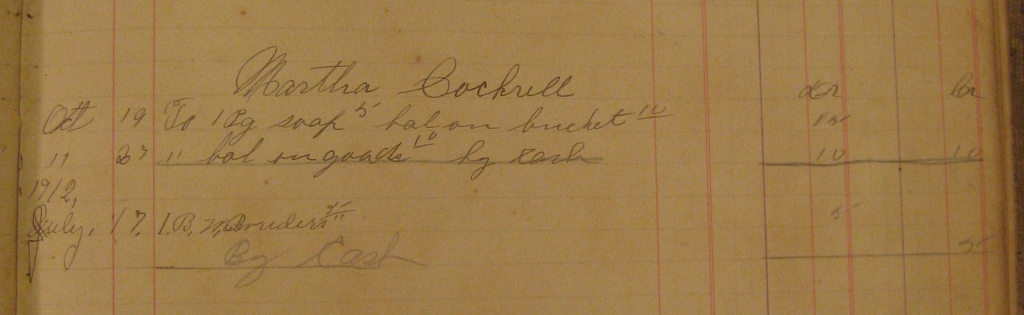 Martha Cockrell Dr Cr
Oct 19 To 1 Pg soap 5 bal on bucket 10 15
" 27 " bal on goods 10 by cash 10 10
1912,
July. 17. 1. B. 5
By Cash 5